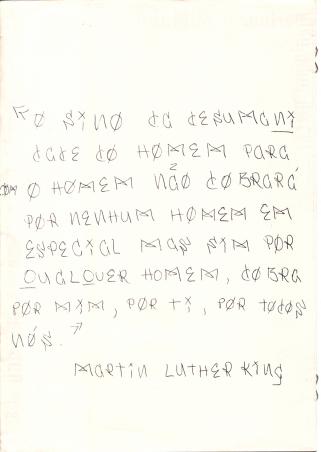 "O SINO DA DESUMANI
DADE DO HOMEM PARA
COM O HOMEM NÃO DOBRARÁ
POR NENHUM HOMEM EM
ESPECIAL MAS SIM POR
QUALQUER HOMEM, DOBRA
POR MIM, POR TI, POR TODOS
NÓS."
MARTIN LUTHER KING